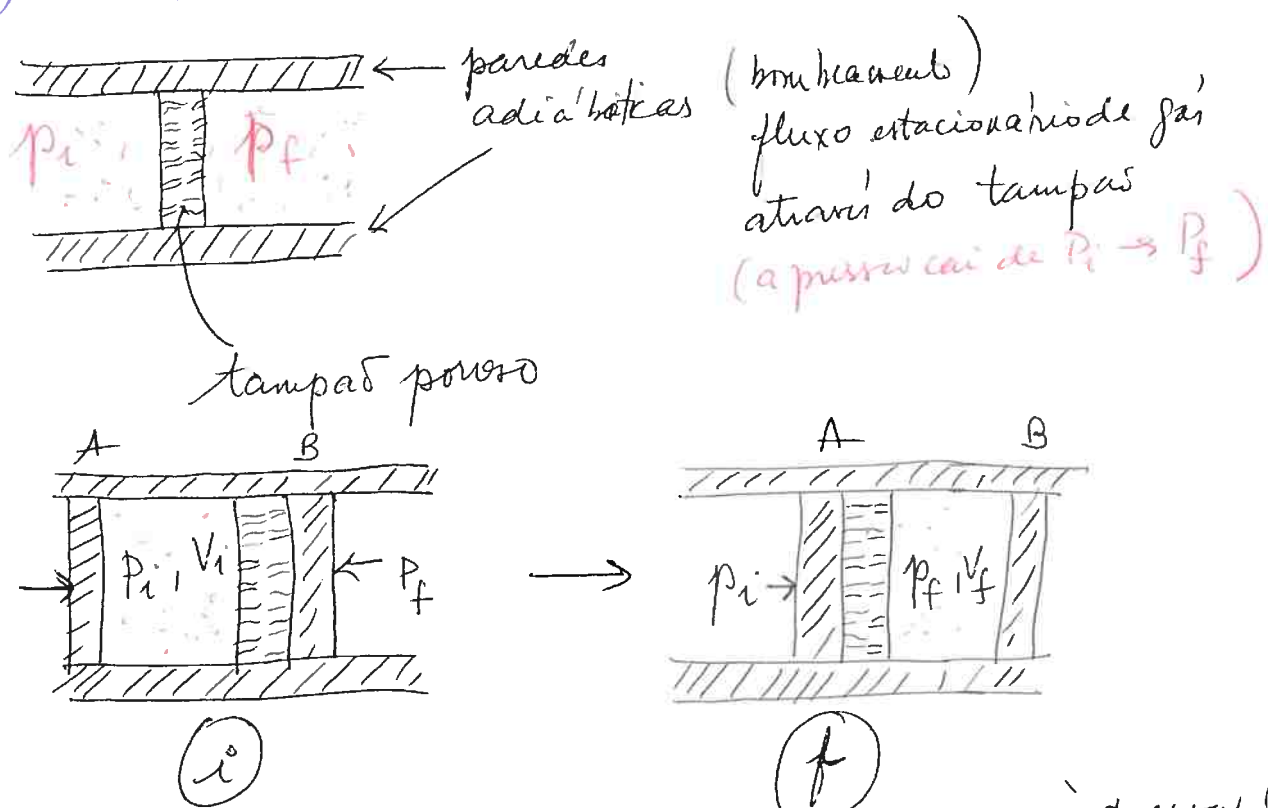 paredes
adiábáticas
(bombeamento)
fluxo estacionário de gás
através do tampão
(a pressão cai de Pi → Pf)
pi
pf
tampão poroso
A
B
Pi, Vi
Pf
i
A
B
pi
pf, Vf
f